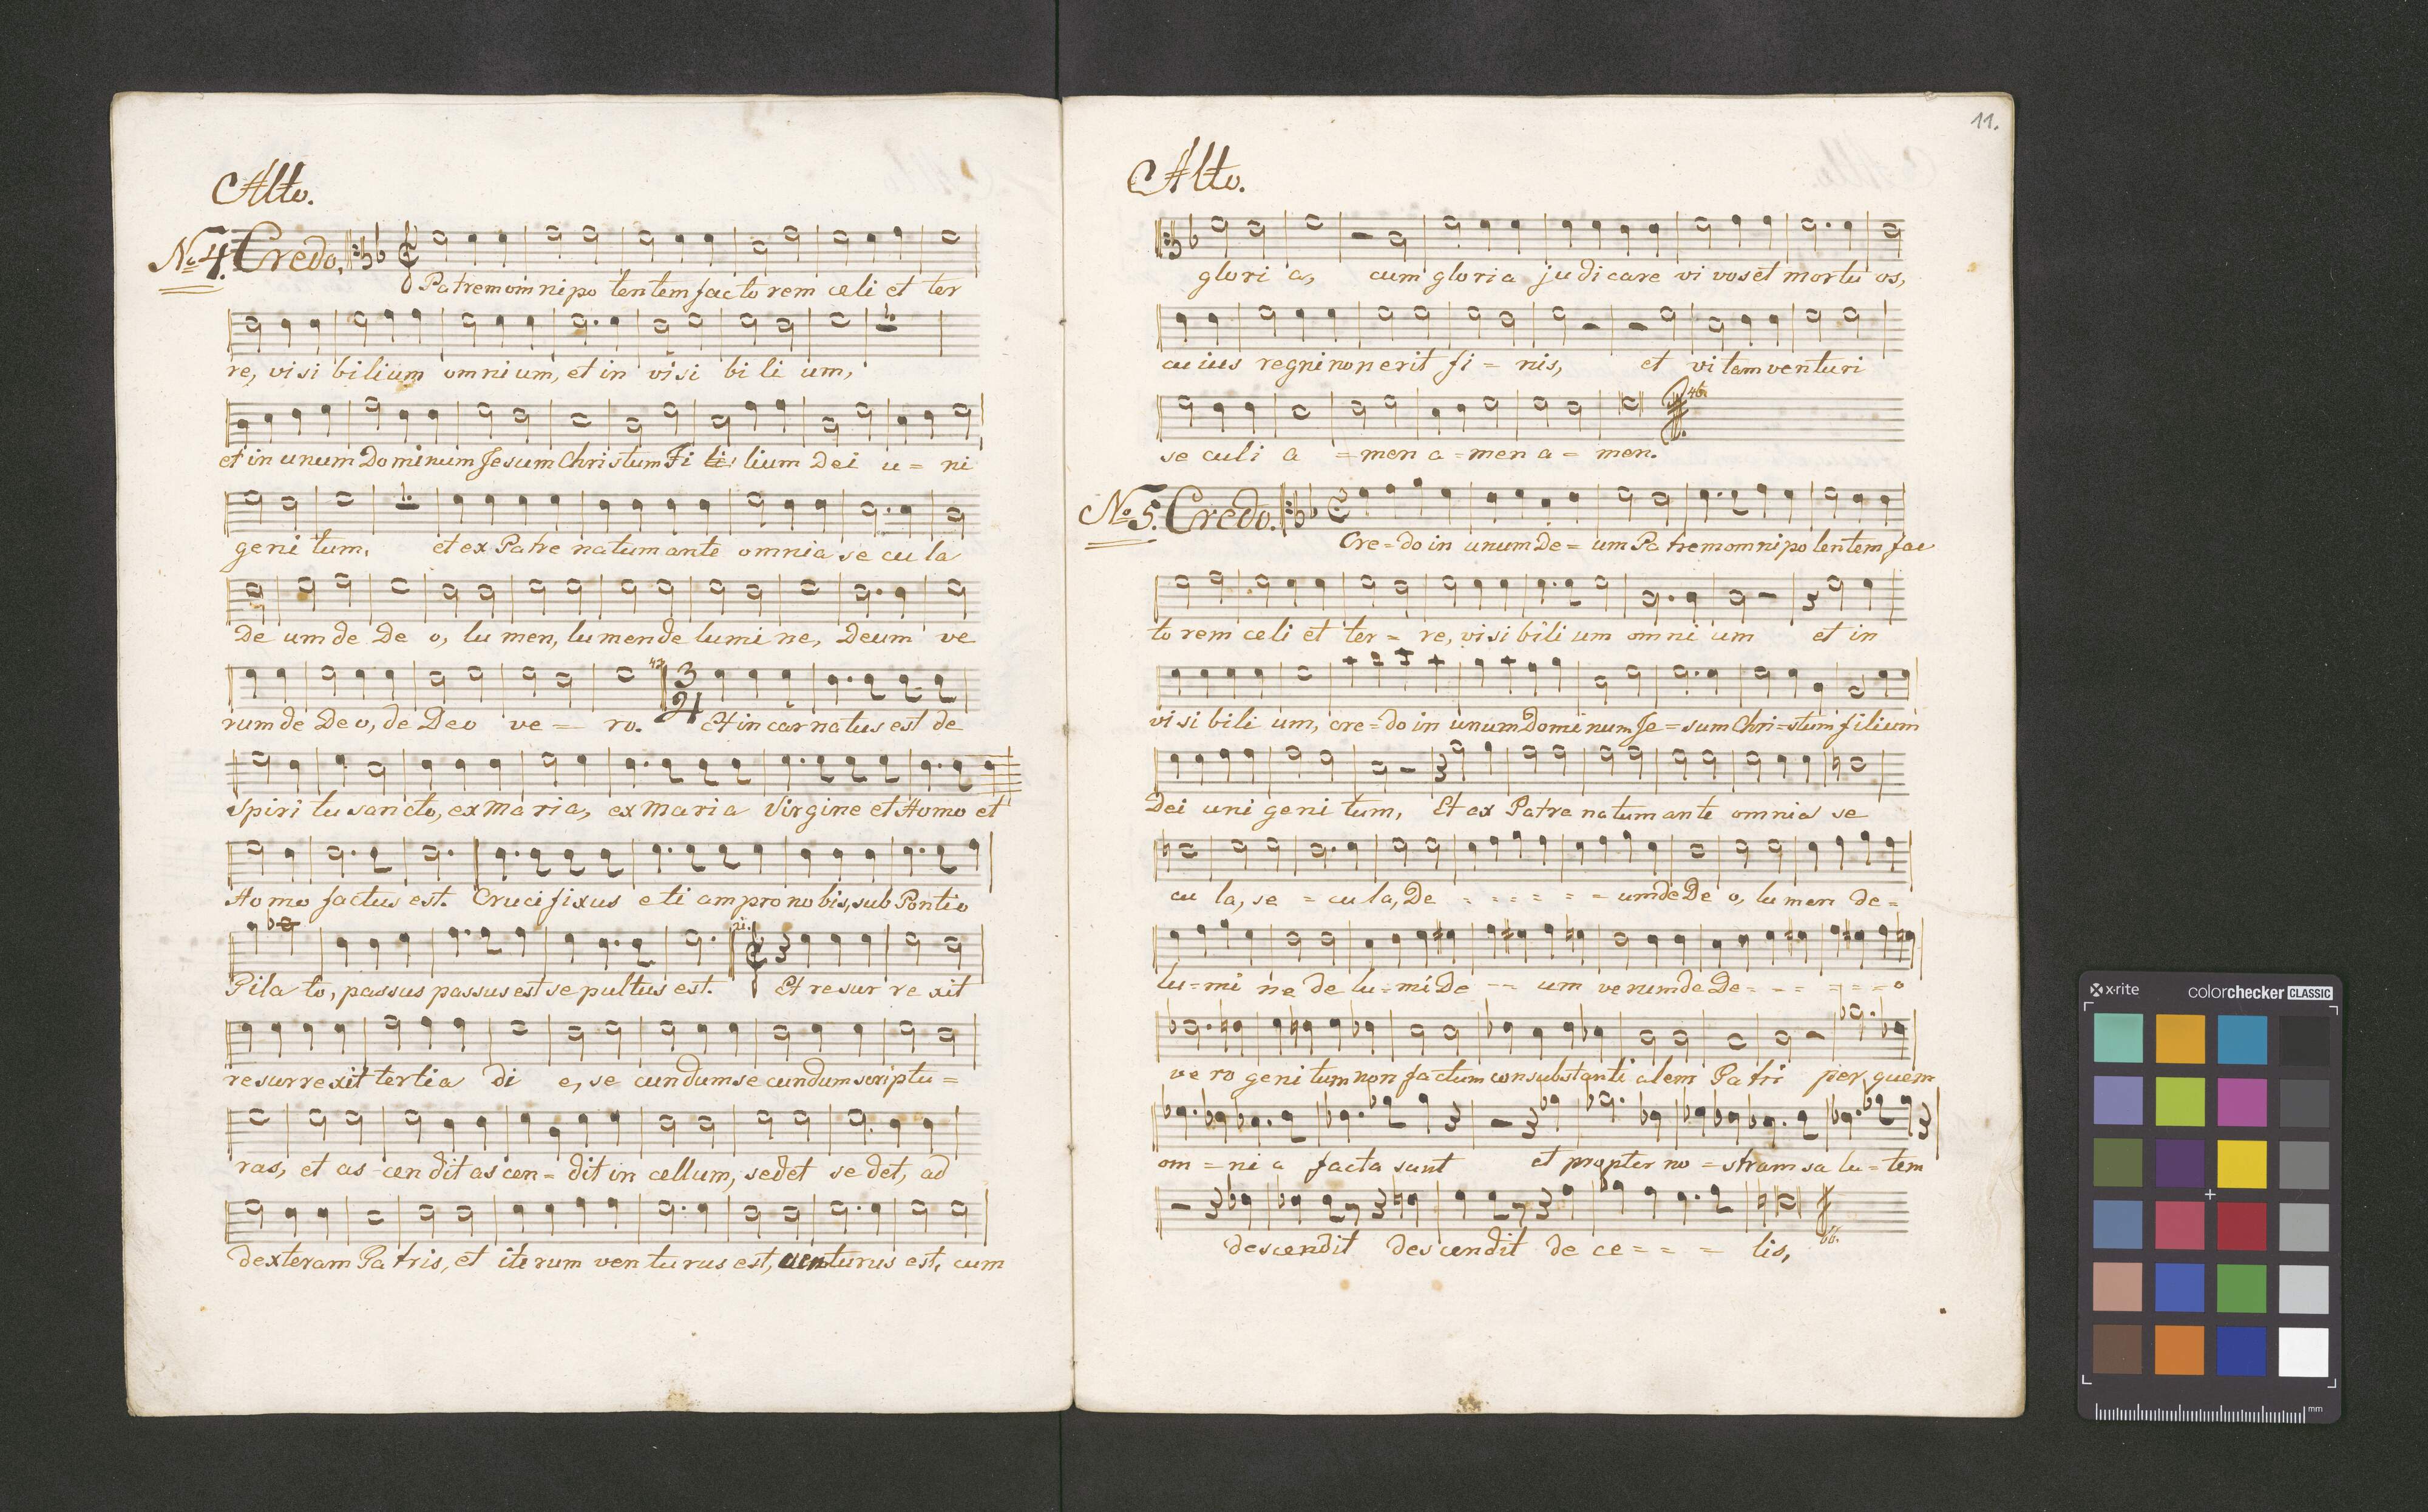 Alto.
No 4. Credo.
Patrem omnipotentem factorem celi et ter
re, visi bilium omnium, et in visi bi li um,
et in unum Dominum Jesum Christum Fi lium Dei u = ni
geni tum, et ex Patre natum ante omnia se cu la
De um de De o, lu men, lumen de lumi ne, Deum ve
rum de Deo, de Deo ve = ro. 47 3 4 Et in carnatus est de
Spiri tu sancto, ex Maria, ex Maria Virgine et Homo et
Homo factus est. Cruci fixus eti am pro nobis, sub Pontio
Pila to, passus passus est se pultus est. Et resur re xit
resurrexit tertia di e, se cundum se cundum scriptu =
ras, et as cen dit as cen = dit in cellum, sedet se det, ad
dexteram Patris, et iterum ven turus est, venturus est, cum
11.
Alto.
glori a, cum gloria judicare vi vos et mortu os,
cuius regni non erit fi = nis, et vitam venturi
se culi a = men a = men a = men. 46.
No 5. Credo.
Cre = do in unum De = um Patrem omnipo tentem fac
to rem celi et ter = re, visi bili um omni um et in
visi bili um, cre = do in unum Dominum Je = sum Chri = stum filium
Dei uni geni tum, Et ex Patre natum ante omnia se
cu la, se = cu la, De = = = = = = um de De o, lu men de =
lu = mi ne de lu = mi De = = um verum de De = = = = = = = o
ve ro geni tum non factum consubstanti alem Patri per quem
om = ni a facta sunt et propter no = stram sa lu = tem
descendit des cendit de ce = = = lis, 66.
x·rite colorchecker CLASSIC
mm